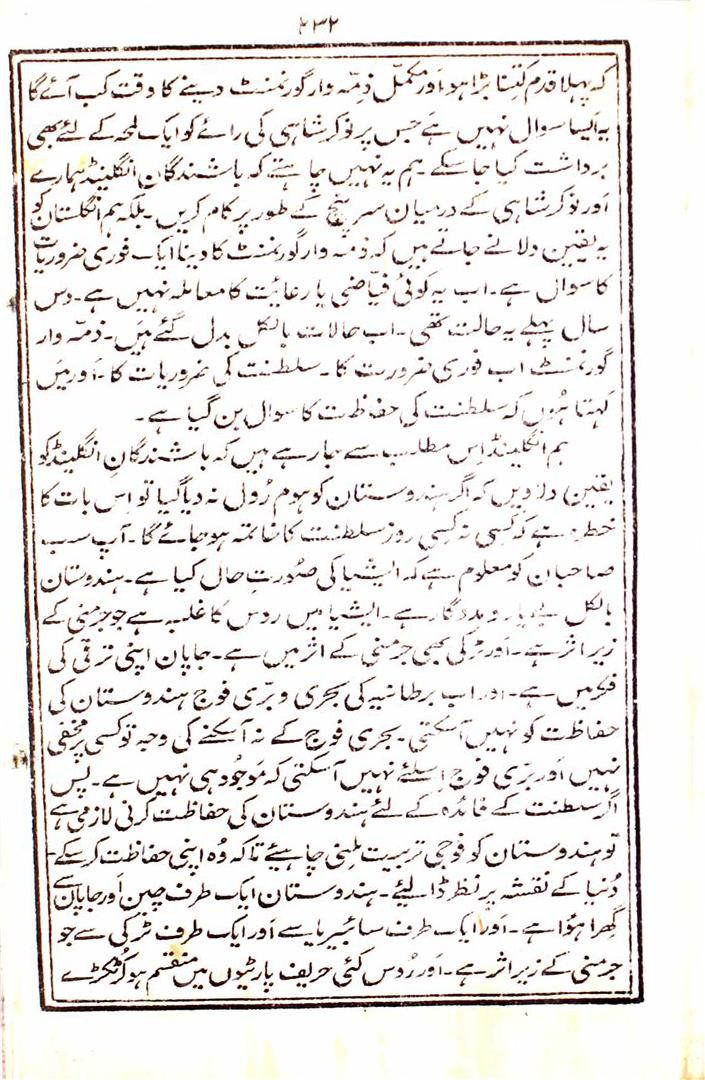 ۲۳۲
کہ پہلا قدم کتنا بڑا ہو اور مکمل ذمہ وار گورنمنٹ دینے کا وقت کب آئے گا
یہ ایسا سوال نہیں ہے جس پر نوکر شاہی کی رائے کو ایک لمحہ کے لئے بھی
برداشت کیا جا سکے۔ ہم یہ نہیں چاہتے کہ باشندگان انگلینڈ ہمارے
اور نوکر شاہی کے درمیان سر پنچ کے طور پر کام کریں۔ بلکہ ہم انگلستان کو
یہ یقین دلانے جاتے ہیں کہ ذمہ وار گورنمنٹ کا دینا ایک فوری ضروریات
کا سوال ہے۔ اب یہ کوئی فیاضی یا رعائت کا معاملہ نہیں ہے۔ دس
سال پہلے یہ حالت تھی۔ اب حالات بالکل بدل گئے ہیں۔ ذمہ وار
گورنمنٹ اب فوری ضرورت کا۔ سلطنت کی ضروریات کا۔ اور میں
کہتا ہوں کہ سلطنت کی حفاظت کا سوال بن گیا ہے۔
ہم انگلینڈ اس مطلب سے جا رہے ہیں کہ باشندگان انگلینڈ کو
یقین دلاویں کہ اگر ہندوستان کو ہوم رول نہ دیا گیا تو اس بات کا
خطرہ ہے کہ کسی نہ کسی روز سلطنت کا خاتمہ ہو جائے گا۔ آپ سب
صاحبان کو معلوم ہے کہ ایشیا کی صورت حال کیا ہے۔ ہندوستان
بالکل بے یار و مددگار ہے۔ ایشیا میں روس کا غلبہ ہے جو جرمنی کے
زیر اثر ہے۔ اور ٹرکی بھی جرمنی کے اثر میں ہے۔ جاپان اپنی ترقی کی
فکر میں ہے۔ اور اب برطانیہ کی بحری و بری فوج ہندوستان کی
حفاظت کو نہیں آ سکتی۔ بحری فوج کے نہ آ سکنے کی وجہ تو کسی پر مخفی
نہیں اور بری فوج اسلئے نہیں آ سکتی کہ موجود ہی نہیں ہے۔ پس
اگر سلطنت کے فائدہ کے لئے ہندوستان کی حفاظت کرنی لازمی ہے
تو ہندوستان کو فوجی تربیت ملنی چاہیئے تاکہ وہ اپنی حفاظت کر سکے۔
دنیا کے نقشہ پر نظر ڈالیئے۔ ہندوستان ایک طرف چین اور جاپان سے
گھرا ہوا ہے۔ اور ایک طرف سائبیریا سے اور ایک طرف ٹرکی سے جو
جرمنی کے زیر اثر ہے۔ اور روس کئی حریف پارٹیوں میں منقسم ہو کر ٹکڑے